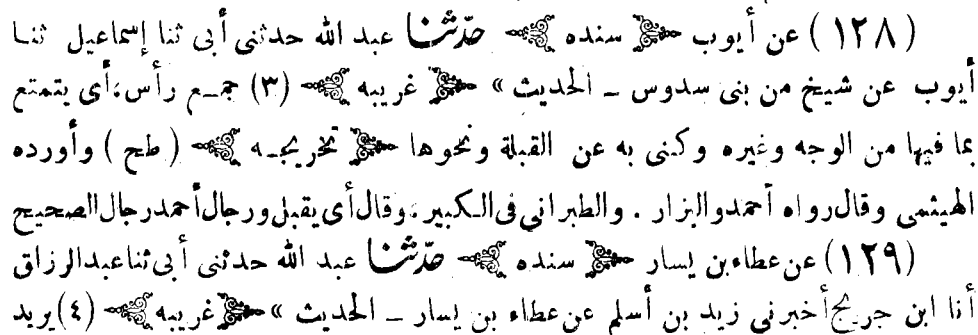 ( ١٢٨ ) عن أيوب ﴿ سنده ﴾ حدّثنا عبد الله حدثنى أبى ثنا إسماعيل ثنا
أيوب عن شيخ من بنى سدوس ــ الحديث » ﴿ غريبه ﴾ (٣) جمع رأس، أى يتمتع
بما فيها من الوجه وغيره وكنى به عن القبلة ونحوها ﴿ تخريجه ﴾ ( طح ) وأورده
الهيثمى وقال رواه أحمد والبزار . والطبرانى فى الكبير، وقال أى يقبل ورجال أحمد رجال الصحيح
( ١٢٩ ) عن عطاء بن يسار ﴿ سنده ﴾ حدّثنا عبد الله حدثنى أبى ثنا عبد الرزاق
أنا ابن جريج أخبرنى زيد بن أسلم عن عطاء بن يسار ــ الحديث » ﴿ غريبه ﴾ (٤) يريد